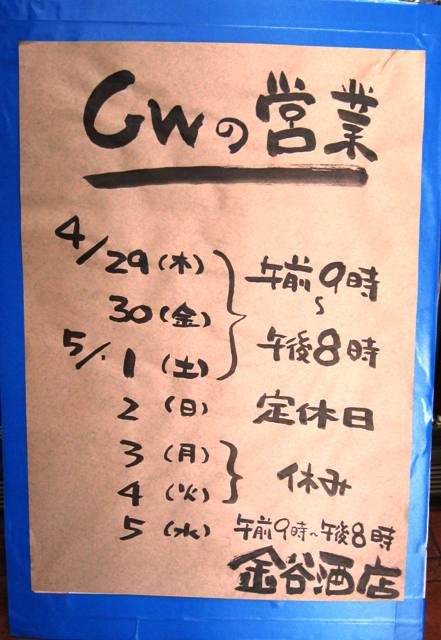 GWの営業
4/29(木)
30(金)
5/1(土)
午前9時
〜
午後8時
2(日) 定休日
3(月)
4(火)
休み
5(水) 午前9時〜午後8時
金谷酒店